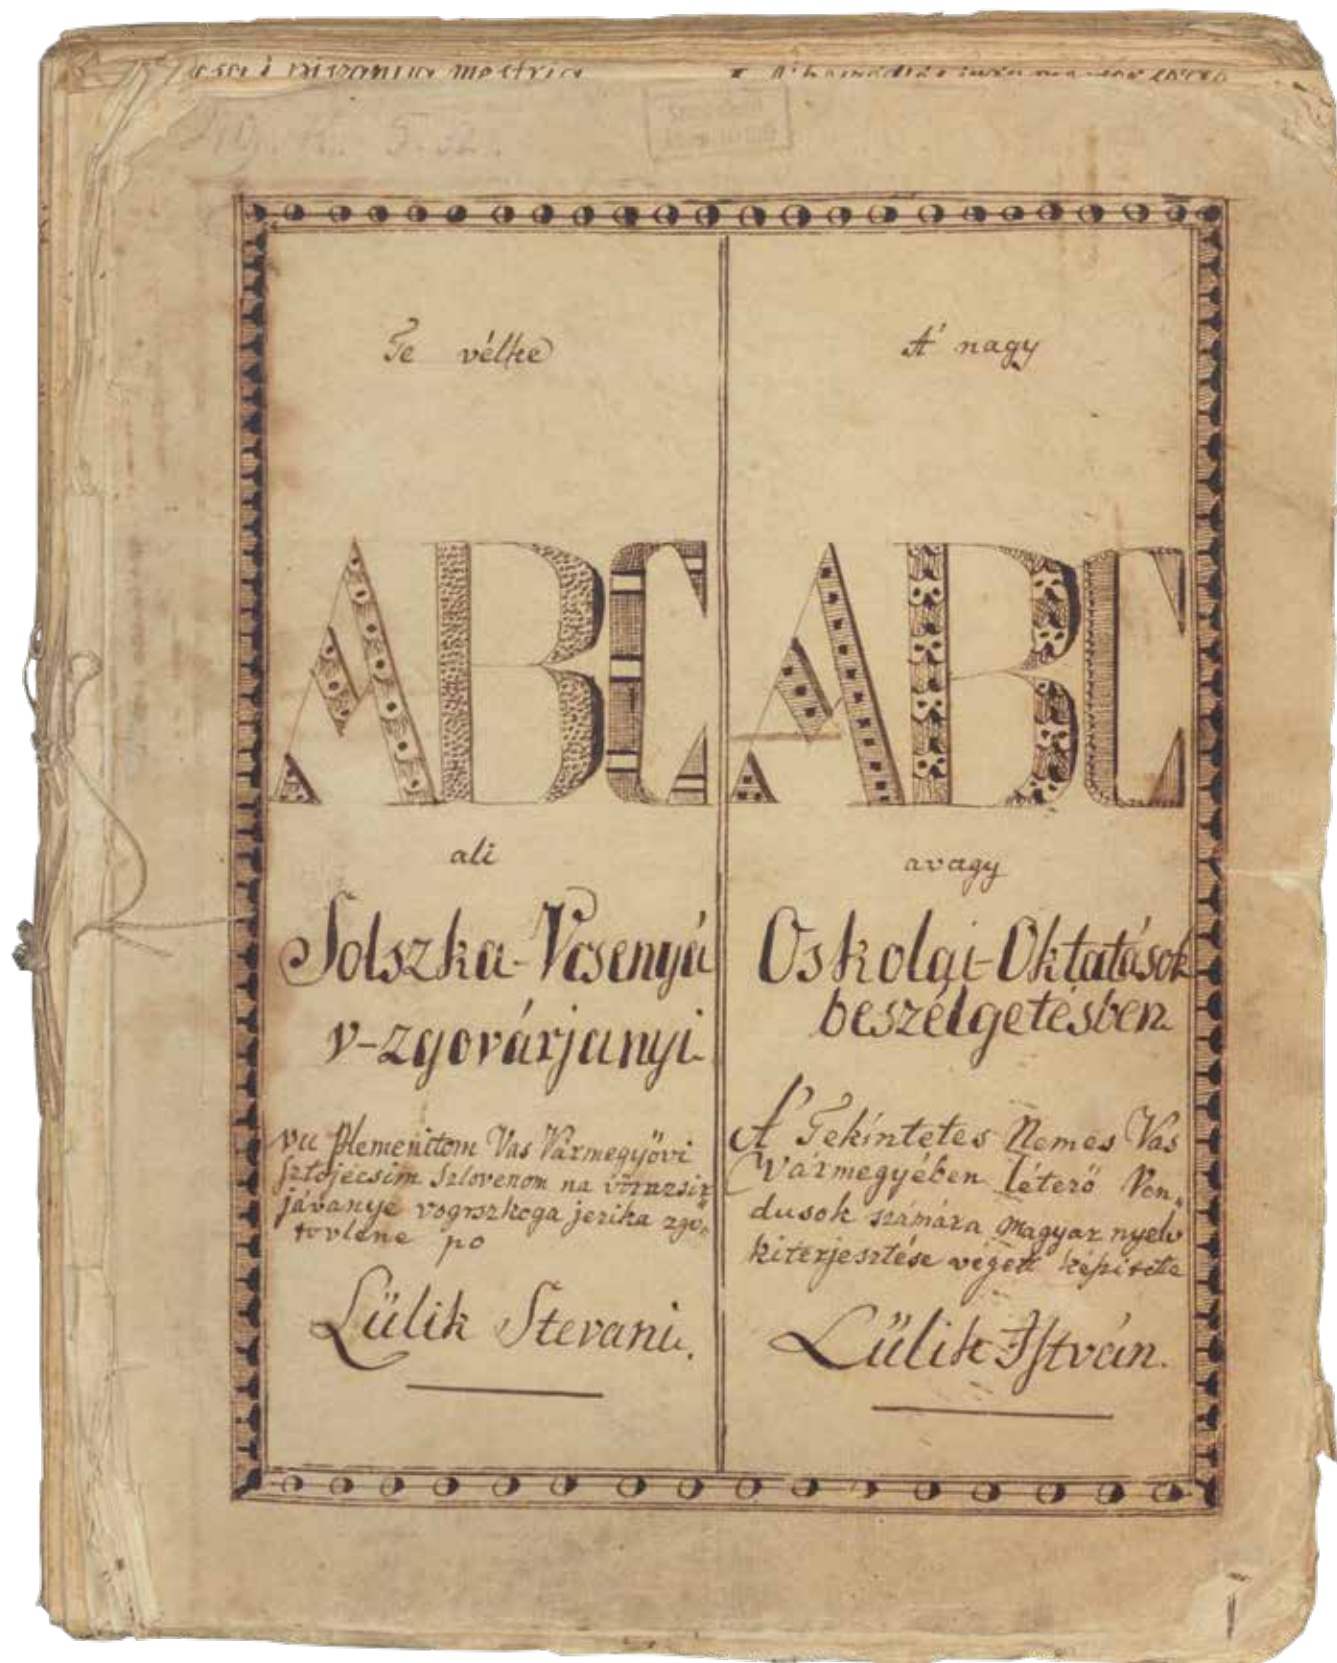 Te vélke
ABC
ali
Solszka-Vcsenyá
v-zgovárjanyi
vu Plemenitom Vas Vármegyövi
sztojécsim Szlovenom na vörazsir
jávanye vogrszkoga jezika zgö-
tovlene po
Lülik Stevani.
A' nagy
ABC
avagy
Oskolai-Oktatások
beszélgetésben
A' Tekíntetes Nemes Vas
Vármegyében létező Ven-
dusok számára magyar nyelv
kiterjesztése végett képzette
Lülik István.